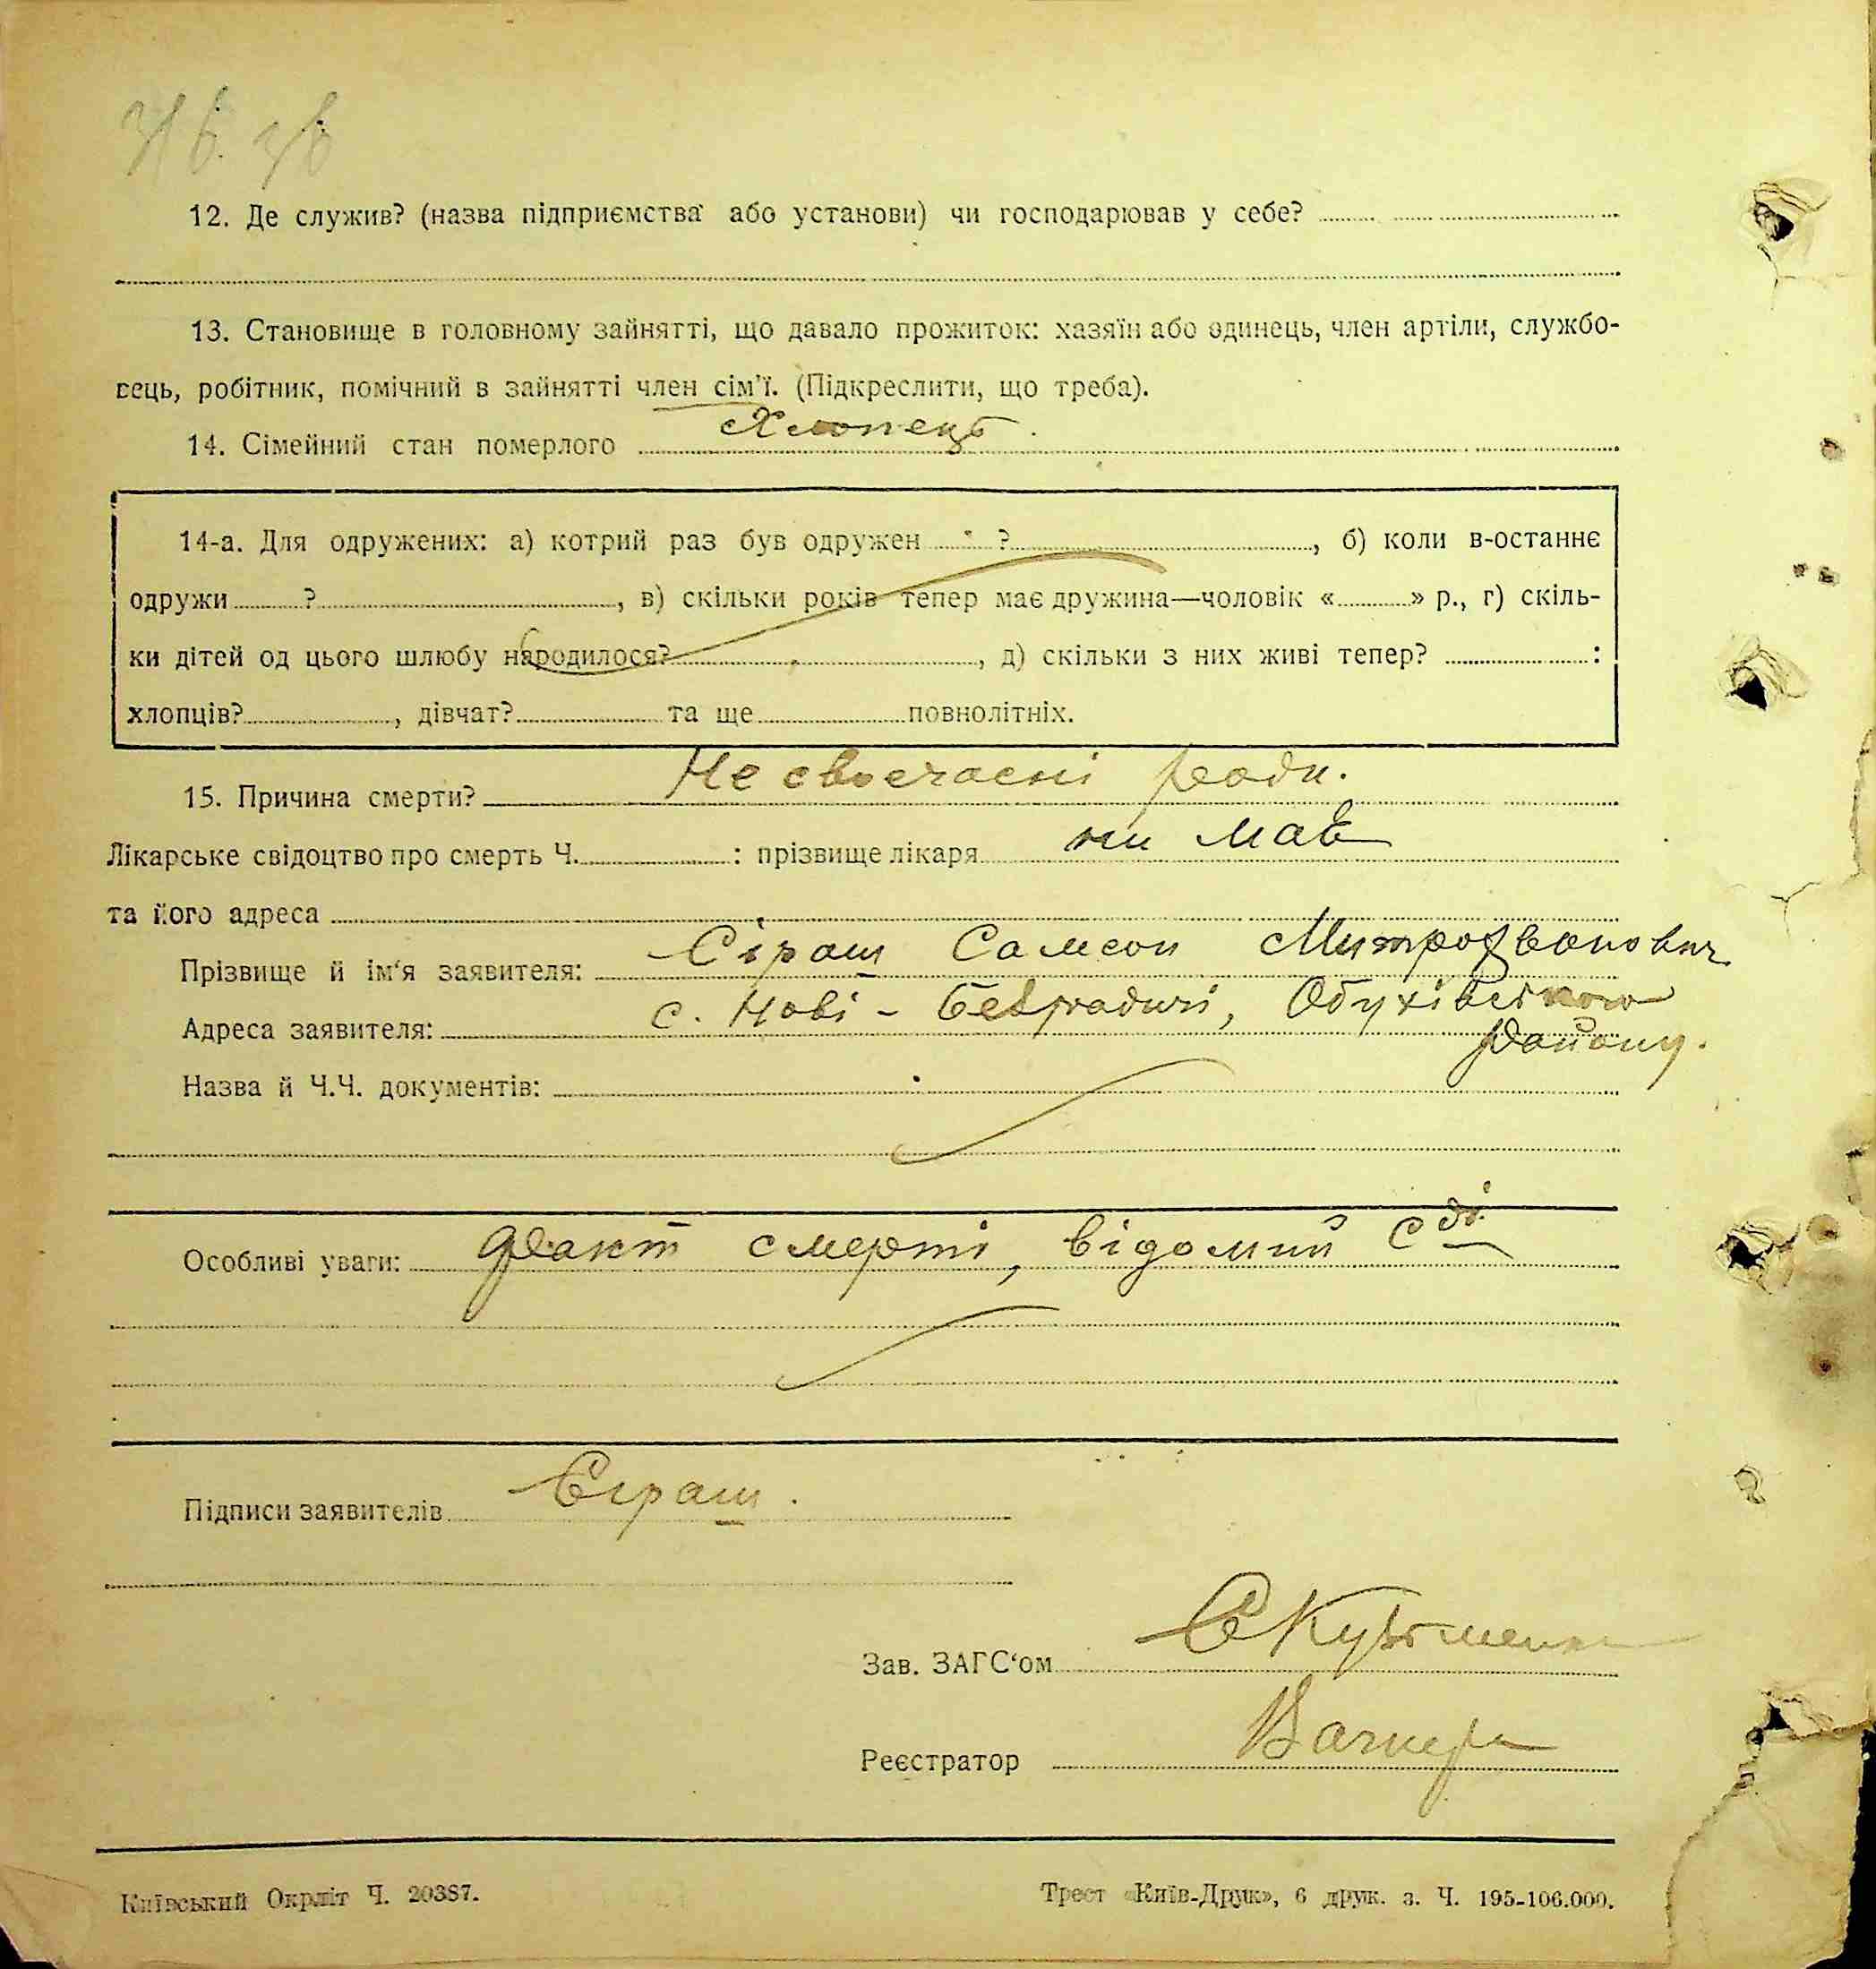 12. Де служив? (назва підприємства або установи) чи господарював у себе?
13. Становище в головному зайнятті, що давало прожиток: хазяїн або одинець, член артіли, службо-
вець, робітник, помічний в зайнятті член сім'ї. (Підкреслити, що треба).
14. Сімейний стан померлого Хлопець.
14-а. Для одружених: а) котрий раз був одружен ?, б) коли в-останнє
одружи ?, в) скільки років тепер має дружина—чоловік « » р., г) скіль-
ки дітей од цього шлюбу народилося? , д) скільки з них живі тепер? :
хлопців? , дівчат? та ще повнолітніх.
15. Причина смерти? Не своєчасні роди.
Лікарське свідоцтво про смерть Ч. : прізвище лікаря ни має
та його адреса
Прізвище й ім'я заявителя: Сіраш Самсон Митрофанович
Адреса заявителя: с. Нові-Безрадичі, Обухівського
Району.
Назва й Ч.Ч. документів:
Особливі уваги: Факт смерті, відомий С/ді
Підписи заявителів Сіраш.
Зав. ЗАГС'ом СКузьменко
Реєстратор
Київський Окрліт Ч. 20387.
Трест «Київ-Друк», 6 друк. з. Ч. 195-106.000.